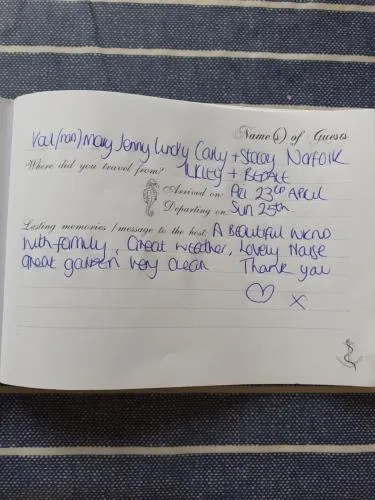 Name(s) of Guests
Val/(nan) Mary Jenny Lucky Carly + Stacey Norfolk
Where did you travel from?
Arrived on: Fri 23rd APRIL
Departing on: Sun 25th.
Lasting memories / message to the host: A Beautiful w/end
with family, Great weather, Lovely House
Great garden very clean Thank you
♡ X